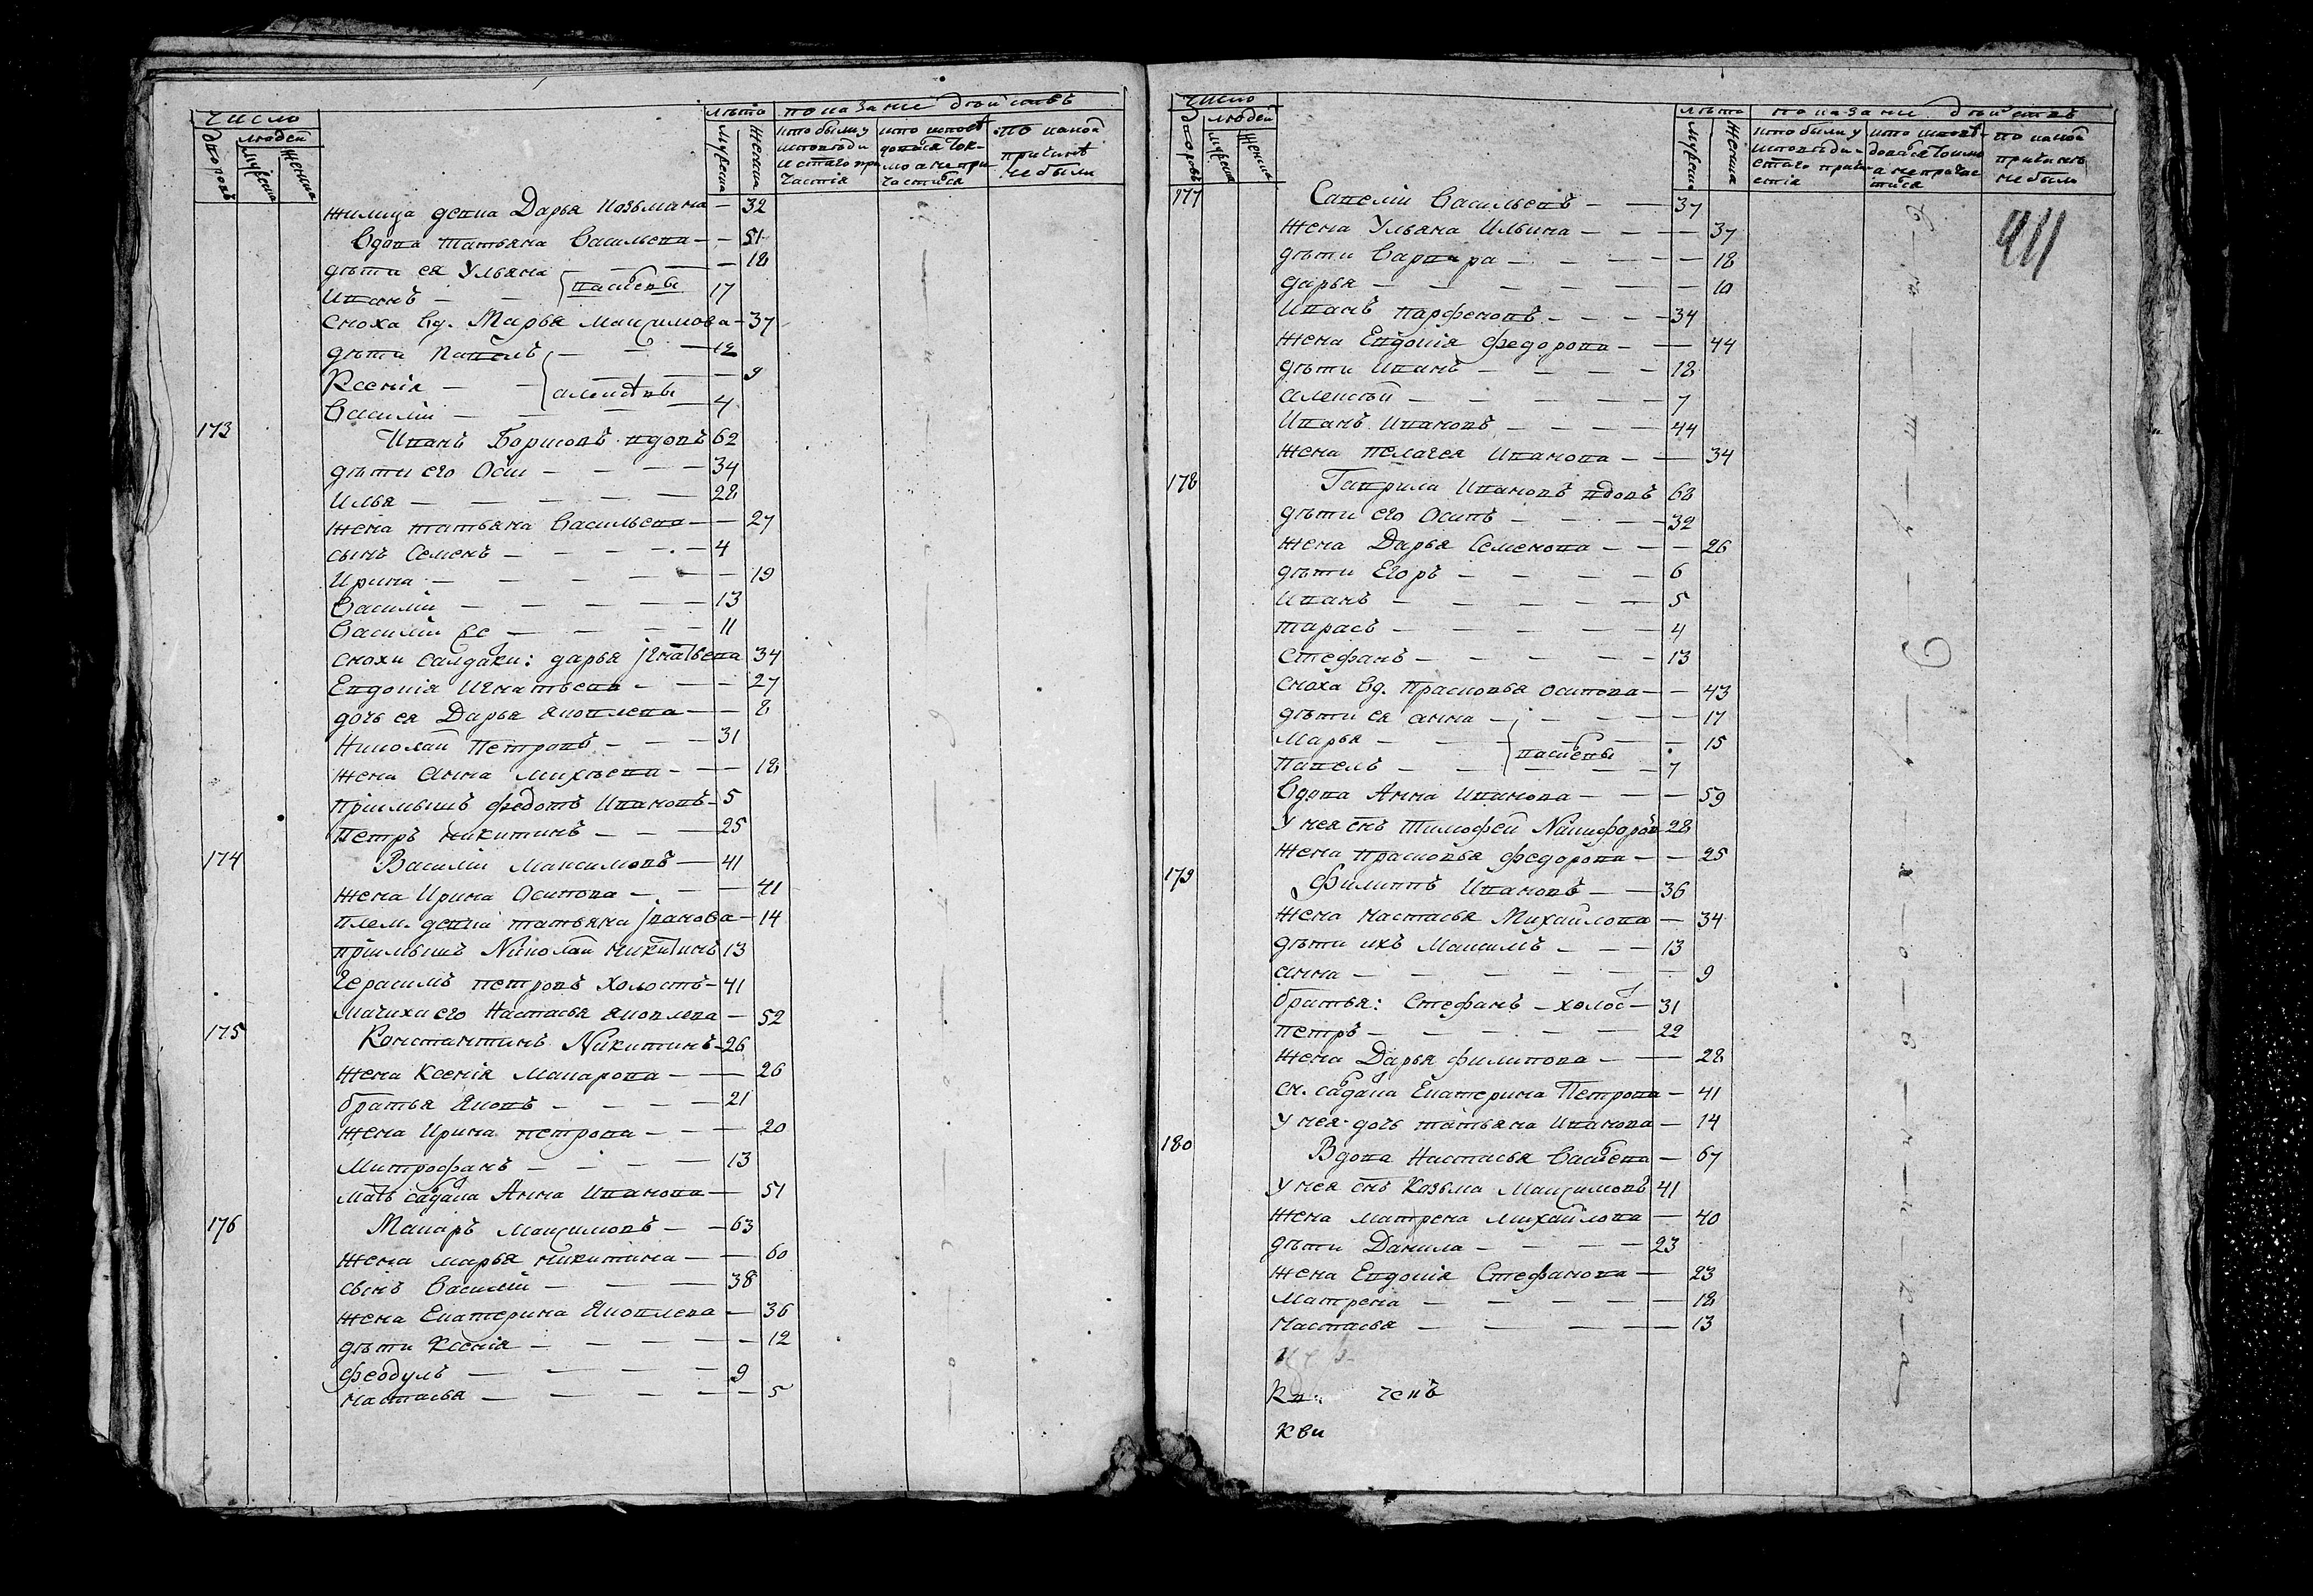 число
людей
дворовъ
мужеска
женска
лѣта
мужеска
женска
показание дѣйствъ
кто были у исповѣди и стаго причастія
кто исповѣдовался токмо а не причастился
по какой причинѣ не были
жилица девка Дарья Козьмина — 32
Вдова татьяна Васильева — — 51
дѣти ея Ульяна — — 18
Иванъ — — васильевы 17
сноха вд. Марья максимова — 37
дѣти Павелъ — — 12
Ксенія — — алексѣевы — 9
Василій — — 4
173 Иванъ Борисовъ вдовъ 62
дѣти его Осип — — — — 34
Илья — — — — — 28
жена татьяна Васильева — — 27
сынъ Семенъ — — — — — 4
Ирина — — — — — — 19
Василій — — — — — 13
Василій — — — — 11
снохи салдатки: дарья Iгнатьева 34
Евдокія Игнатьева — — — 27
дочь ея Дарья яковлева — — 8
Николай Петровъ — — — 31
жена Анна михѣева — — — 18
пріимышъ федотъ Ивановъ — 5
Петръ никитинъ — — — 25
174 Василій Максимовъ — 41
жена Ирина Осипова — — — 41
плем. девка татьяна Iванова — 14
пріимышъ Николай никитинъ 13
герасимъ петровъ холостъ — 41
мачиха его Настасья яковлева — 52
175 Константинъ Никитинъ — 26
жена Ксенія Макарова — — — 26
братья Яковъ — — — — 21
жена Ирина петрова — — — 20
Митрофанъ — — — — 13
мать Анна Иванова — 51
176 Макаръ Максимовъ — — 63
жена марья никитина — — 60
сынъ Василій — — — — 38
жена Екатерина Яковлева — 36
дѣти Ксенія — — — — — 12
феодулъ — — — — 9
настасья — — — — — 5
число
людей
дворовъ
мужеска
женска
лѣта
мужеска
женска
показание дѣйствъ
кто были у исповѣди и стаго причастія
кто исповѣдовался токмо а не причастился
по какой причинѣ не были
411
177 Савелій Васильевъ — — 37
жена Ульяна Ильина — — — — 37
дѣти Варвара — — — — — 18
дарья — — — — — — 10
Иванъ парфеновъ — — — — 34
жена Евдокія федорова — — 44
дѣти Иванъ — — — — 18
алексѣй — — — — — 7
Иванъ Ивановъ — — — — 44
жена пелагея Иванова — — 34
178 Гаврила Ивановъ вдовъ 68
дѣти его Осипъ — — — — 32
жена Дарья Семенова — — — 26
дѣти Егоръ — — — — 6
Иванъ — — — — — 5
тарасъ — — — — — 4
стефанъ — — — — — 13
сноха вд. Прасковья осипова — — 43
дѣти ея анна — — — — — 17
Марья — — васильевы — 15
Павелъ — — — — 7
Вдова Анна Иванова — — — 59
у нея снъ тимофей Никифоровъ 28
жена прасковья федорова — — 25
179 Филиппъ Ивановъ — — 36
жена настасья Михайлова — 34
дѣти ихъ Максимъ — — — 13
анна — — — — — — 9
братья: Стефанъ — холос — 31
петръ — — — — — 22
жена Дарья филипова — — 28
сн. Екатерина Петрова — 41
у нея дочь татьяна Иванова — 14
180 Вдова Настасья Васильева — 67
у нея снъ Козьма Максимовъ 41
жена матрена михайлова — 40
дѣти Данила — — — — 23
жена Евдокія Стефанова — 23
Матрена — — — — — 18
настасья — — — — 13
кви